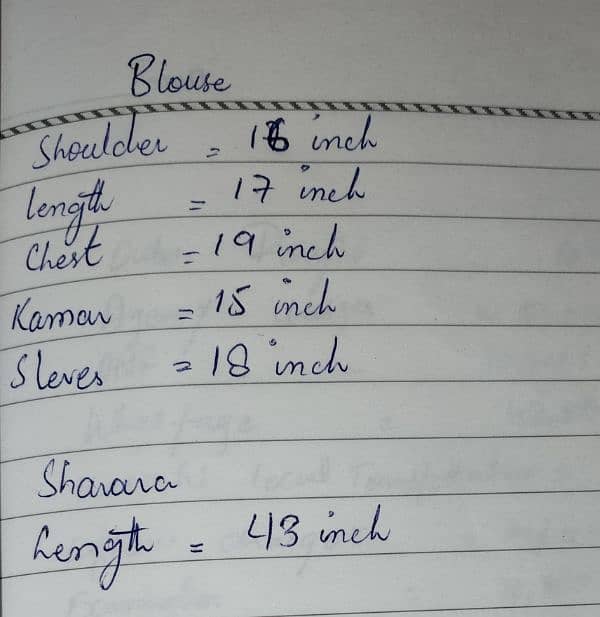 Blouse
Shoulder = 16 inch
length = 17 inch
Chest = 19 inch
Kamar = 15 inch
Sleves = 18 inch
Sharara
Length = 43 inch